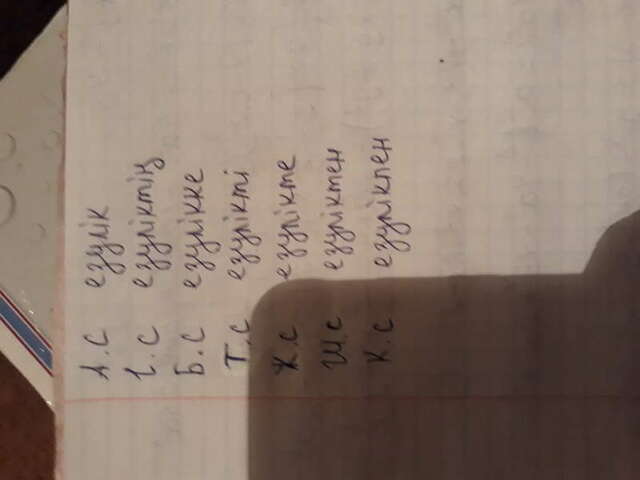 А.С езулік
І.С езуліктің
Б.С езулікке
Т.С езулікті
Ж.С езулікте
Ш.С езуліктен
К.С езулікпен